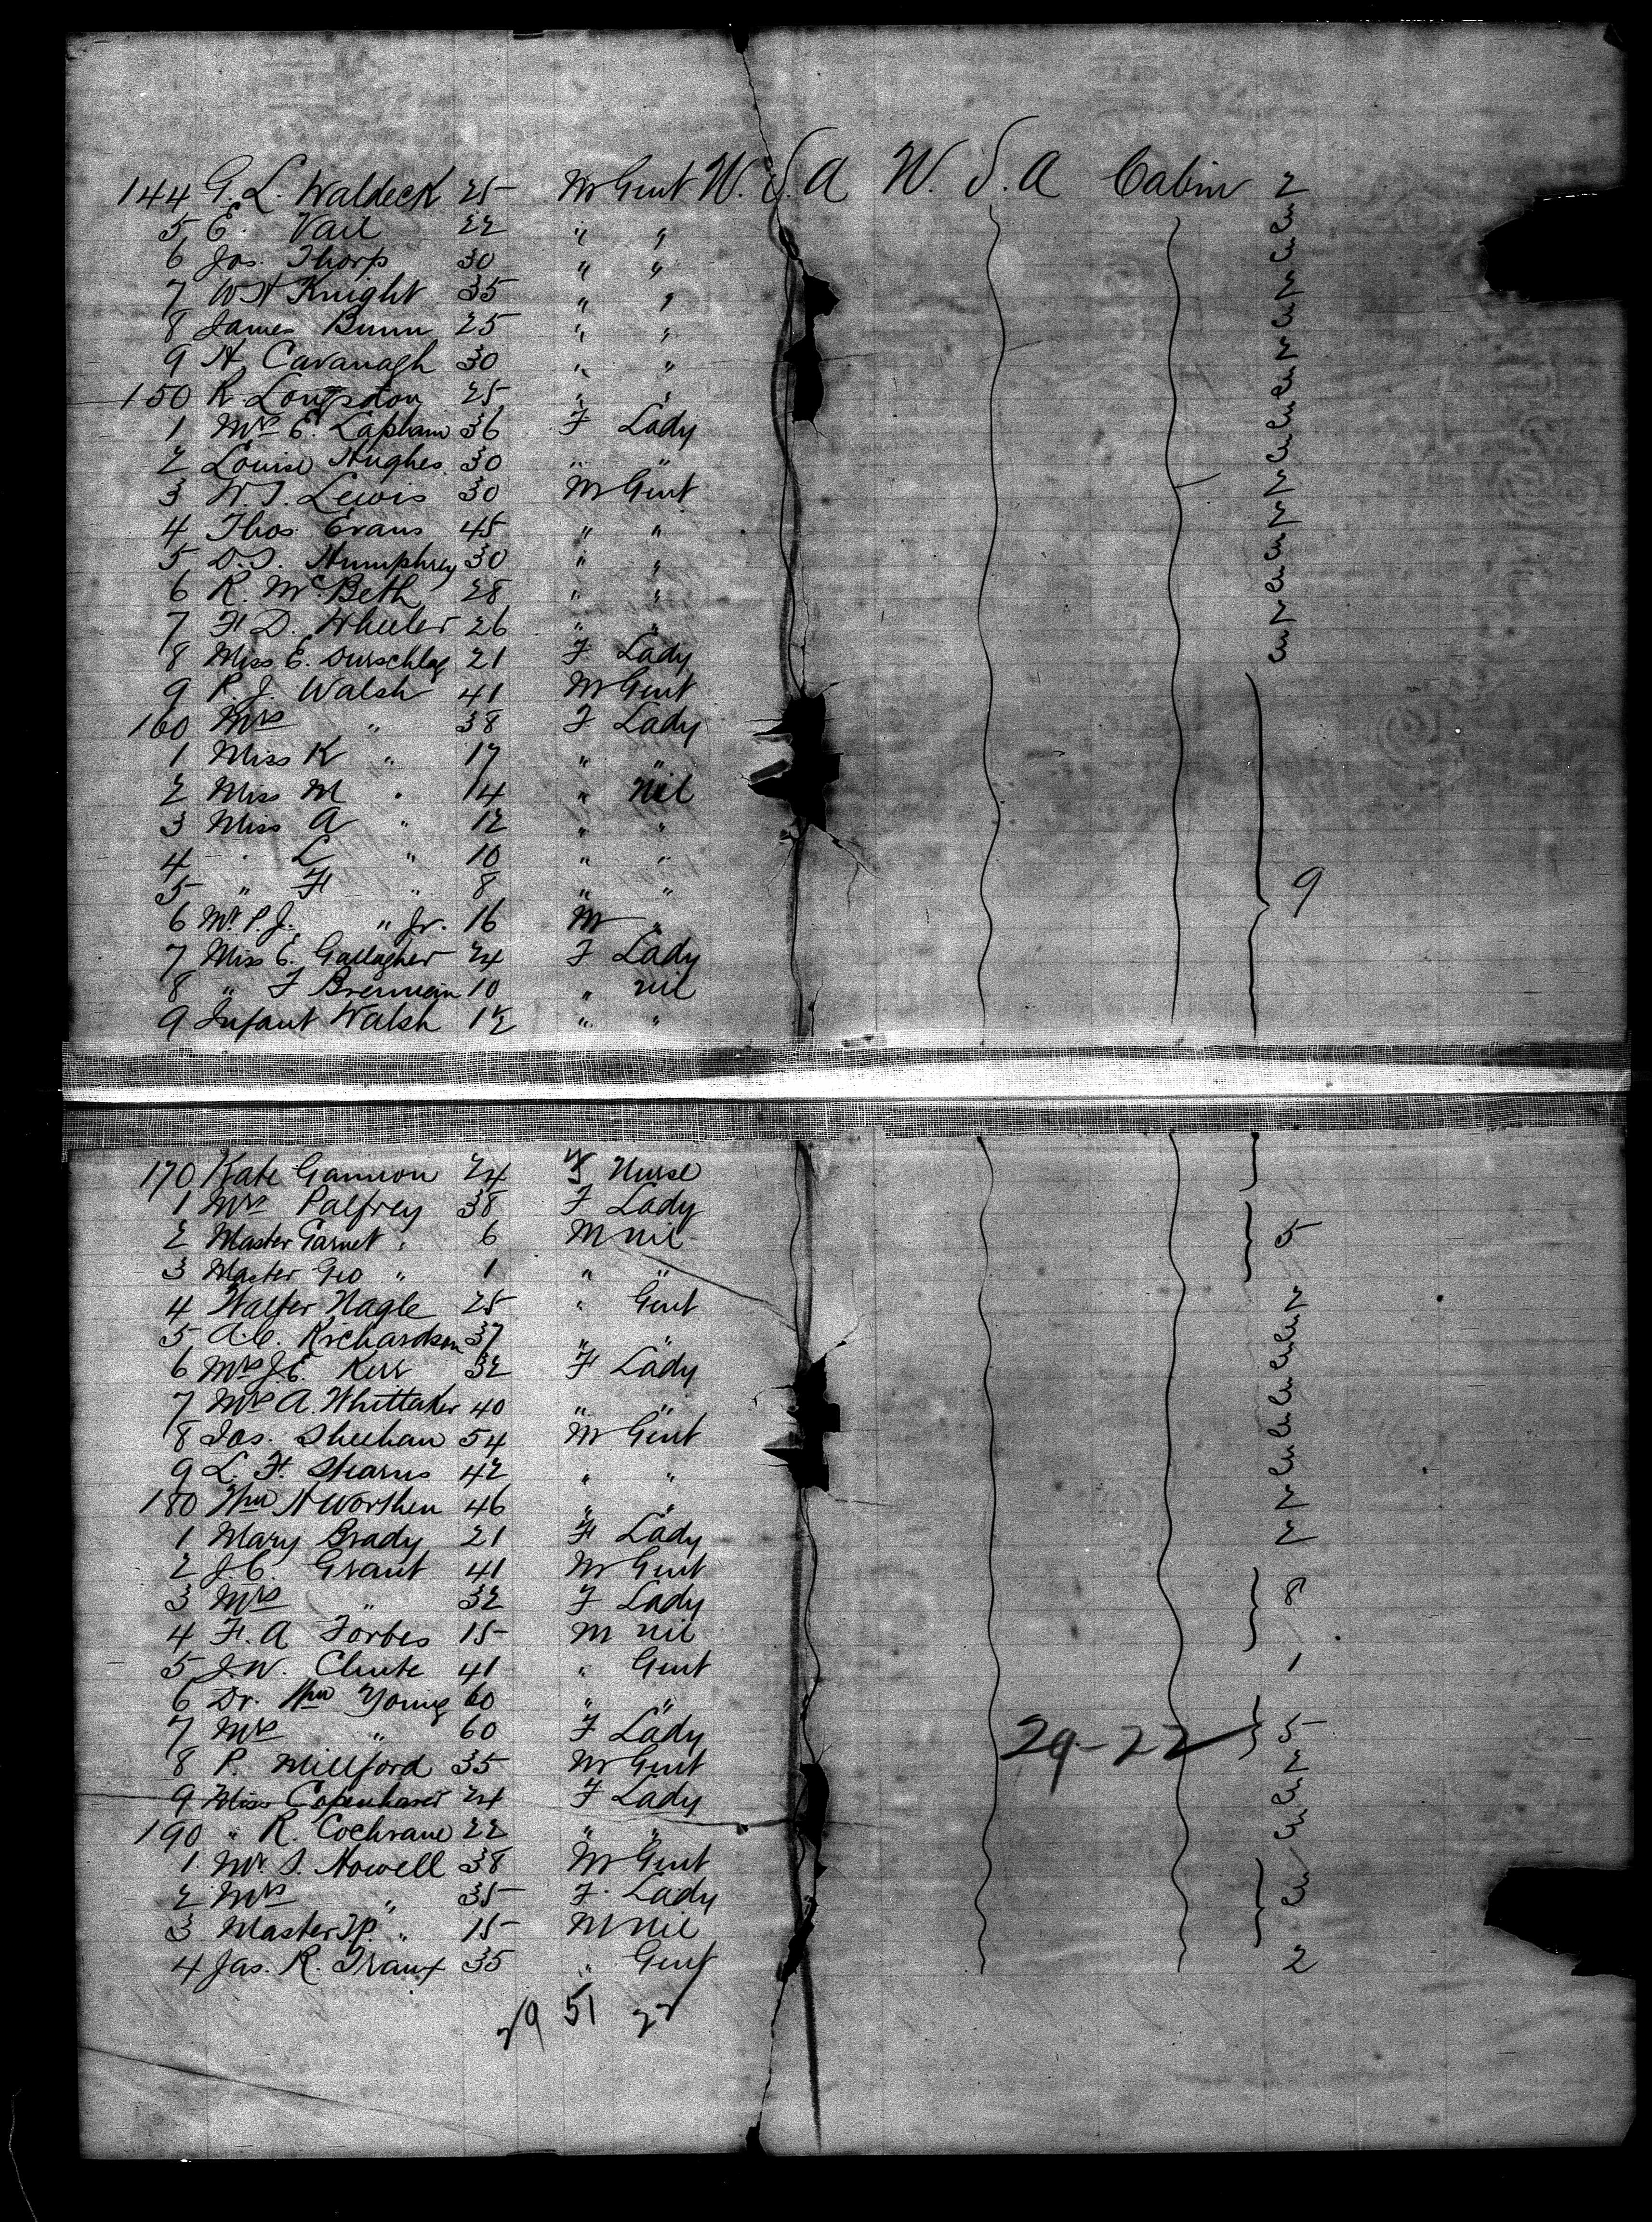 144 G. L. Waldeck 25 M Gent U.S.A U.S.A Cabin 2
5 E. Vail 22 " " 3
6 Jos. Thorp 30 " " 3
7 W H Knight 35 " " 2
8 James Bunn 25 " " 3
9 H. Cavanagh 30 " " 2
150 R. Longsdon 25 " " 3
1 Mrs E. Lapham 36 F Lady 3
2 Louise Hughes 30 " " 3
3 W. T. Lewis 30 M Gent 2
4 Thos. Evans 45 " " 2
5 D. T. Humphrey 30 " " 3
6 R. McBeth 28 " " 3
7 H D. Wheeler 26 " " 2
8 Miss E. Durschlag 21 F Lady 3
9 P. J. Walsh 41 M Gent
160 Mrs " 38 F Lady
1 Miss K " 17 " "
2 Miss M " 14 " nil
3 Miss A " 12 " "
4 " L " 10 " "
5 " H " 8 " " 9
6 Mr P. J. " Jr. 16 M "
7 Miss E. Gallagher 24 F Lady
8 " F Brennan 10 " nil
9 Infant Walsh 1½ " "
170 Kate Gannon 24 F Nurse
1 Mrs Palfrey 38 F Lady
2 Master Garnet " 6 M nil 5
3 Master Geo " 1 " "
4 Walter Nagle 25 " Gent 2
5 A. C. Richardson 37 " " 3
6 Mrs J. E. Kerr 32 F Lady 3
7 Mrs A. Whittaker 40 " " 3
8 Jas. Sheehan 54 M Gent 3
9 L. H. Stearns 42 " " 3
180 Wm H Worthen 46 " " 2
1 Mary Brady 21 F Lady 2
2 J. C. Grant 41 M Gent
3 Mrs " 32 F Lady 8
4 H. A Forbes 15 M nil
5 J. W. Clute 41 " Gent 1
6 Dr. Wm Young 60 " "
7 Mrs " 60 F Lady 29-22 5
8 P. Millford 35 M Gent 2
9 Miss Copenhaver 24 F Lady 3
190 " R. Cochrane 22 " " 3
1 Mr. S. Howell 38 M Gent
2 Mrs " 35 F. Lady 3
3 Master " 15 M nil
4 Jas. R. Traux 35 " Gent 2
29 51 22